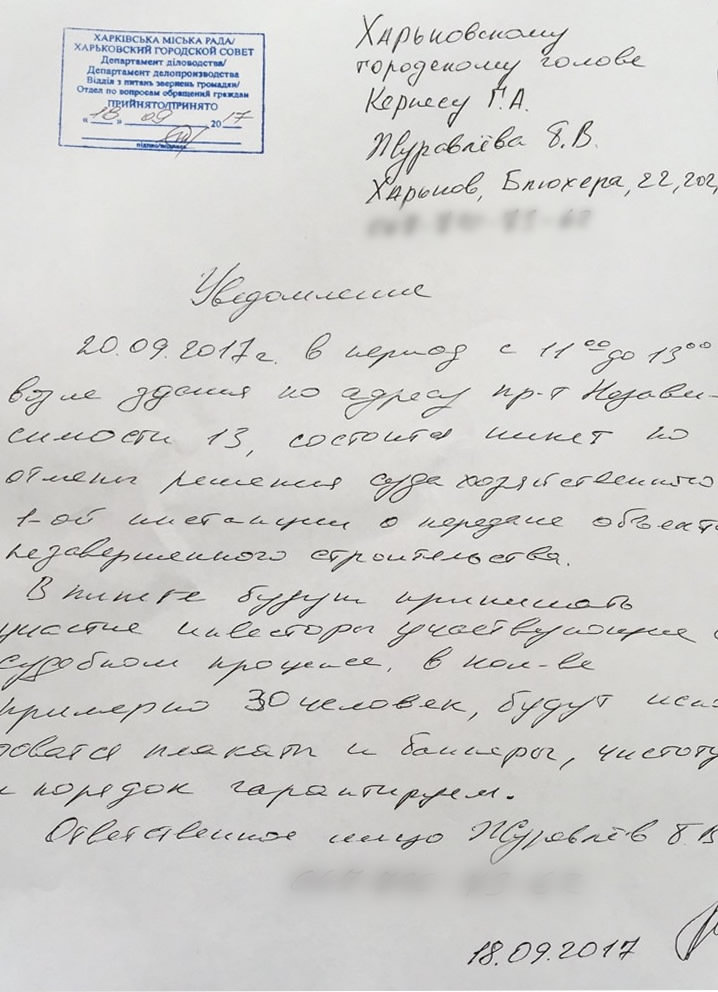 ХАРКІВСЬКА МІСЬКА РАДА/
ХАРЬКОВСКИЙ ГОРОДСКОЙ СОВЕТ
Департамент діловодства/
Департамент делопроизводства
Відділ з питань звернень громадян/
Отдел по вопросам обращений граждан
ПРИЙНЯТО/ПРИНЯТО
« 18 » 09 2017
підпис/подпись
Харьковскому
городскому голове
Кернесу Г.А.
Журавлёва Б.В.
Харьков, Блюхера, 22, 202,
Уведомление
20.09.2017г. в период с 11 00 до 13 00
возле здания по адресу пр-т Незави-
симости 13, состоится пикет по
отмены решения суда хозяйственного
1-ой инстанции о передаче объекта
незавершенного строительства.
В пикете будут принимать
участие инвесторы участвующие в
судебном процессе, в кол-ве
примерно 30 человек, будут исп
зоватся плакаты и баннеры, чистоту
и порядок гарантируем.
Ответственное лицо Журавлёв Б.В
18.09.2017